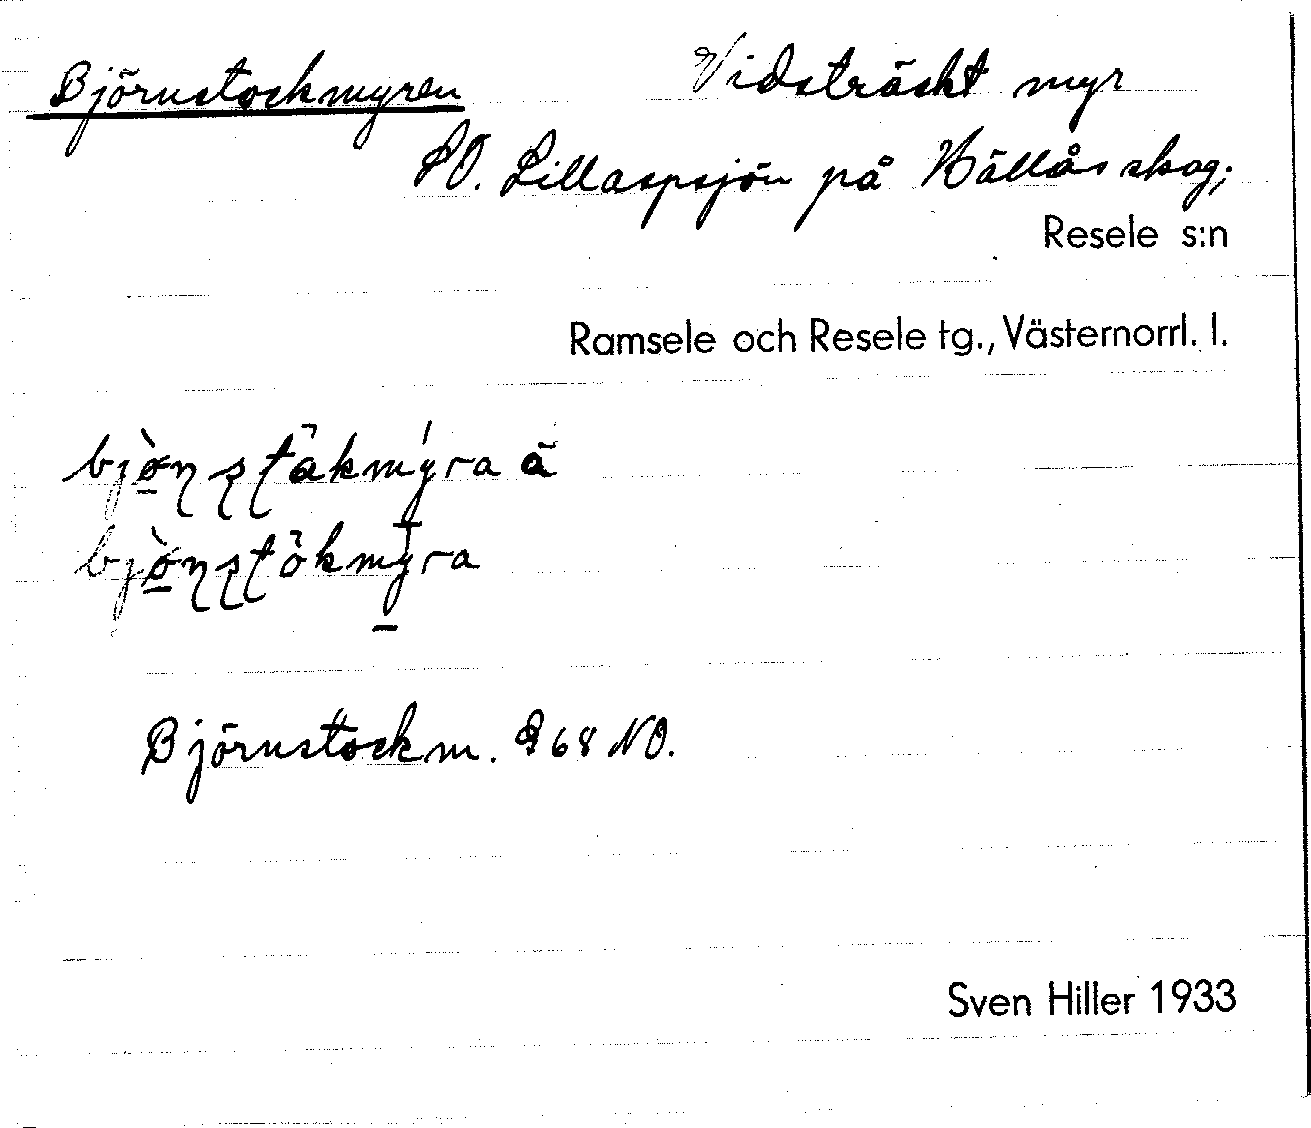 Björnstockmyren Vidsträckt myr
SO. Lillaspsjön på Hällås skog;
Resele s:n
Ramsele och Resele tg., Västernorrl. l.
Björnstockm. 968 NO.
Sven Hiller 1933